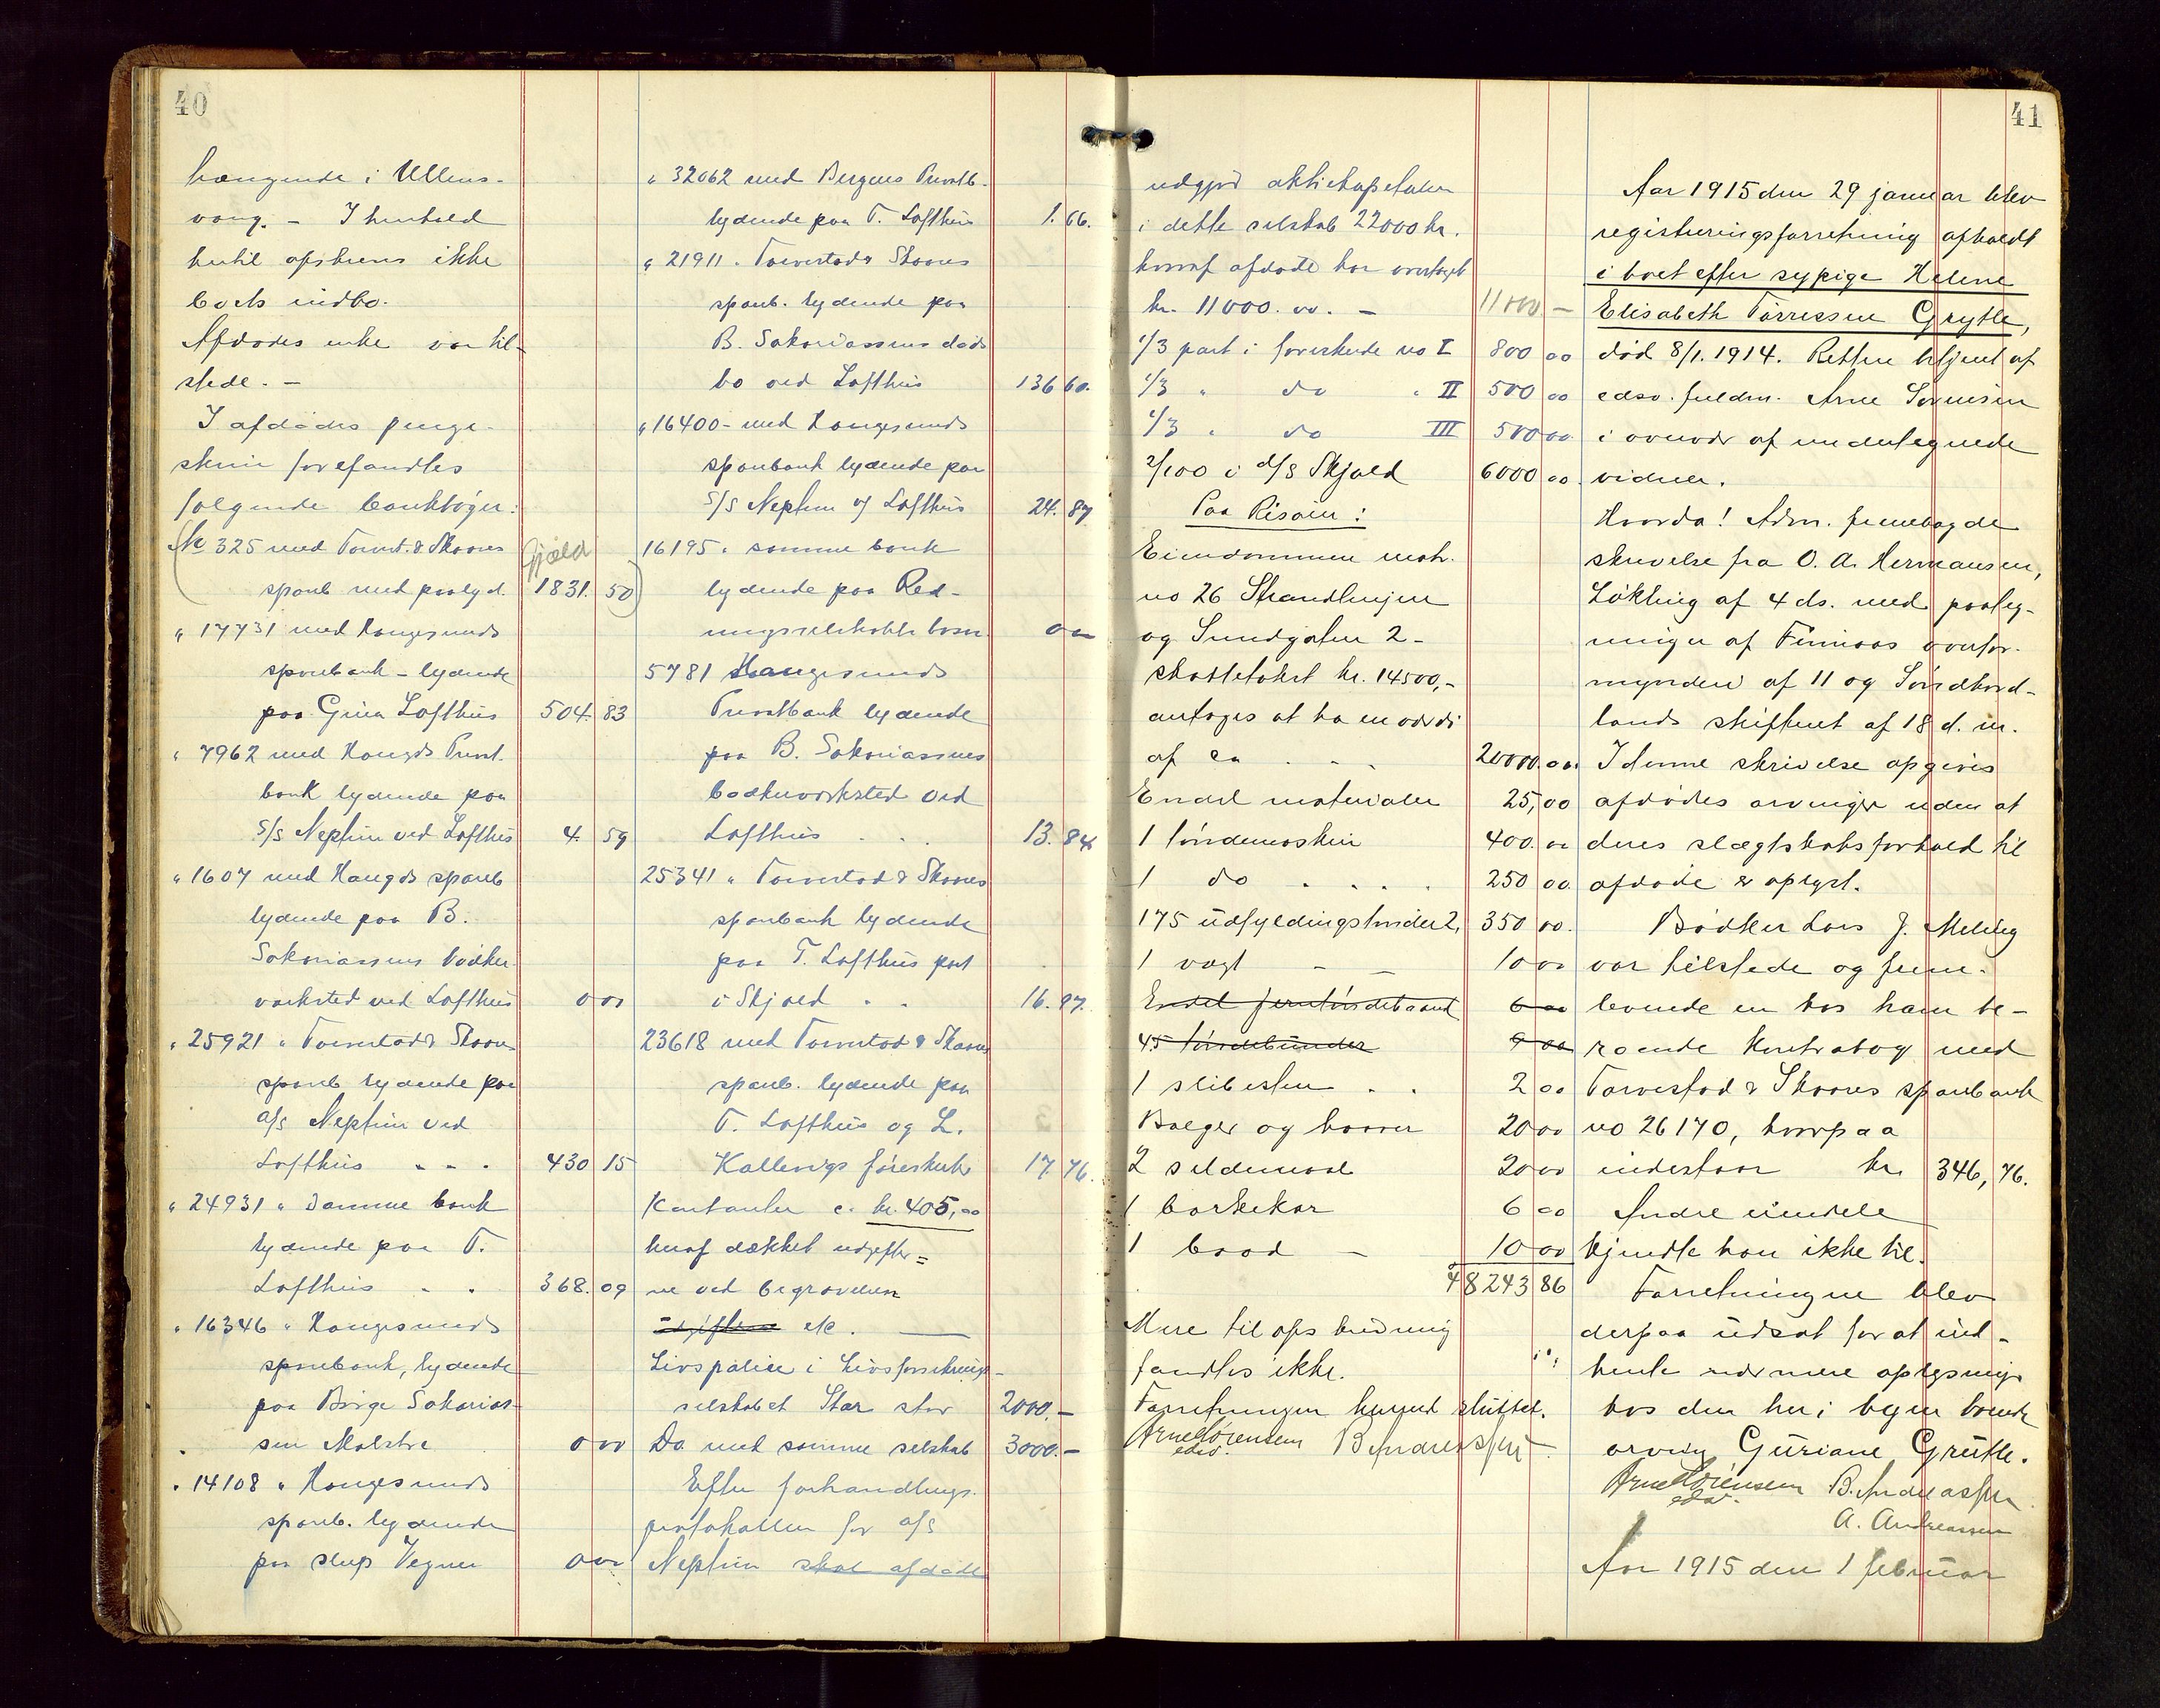 40
hængende i Ullens-
vang. - I henhold
hertil opskrives ikke
boets indbo.
Afdødes enke var til-
stede. -
I afdødes penge-
skrin forefandtes
følgende bankbøger:
No 325 med Torvest. & Skaares
Gjæld
sparb med paalyd. 1831. 50
" 17731 med Haugesunds
sparebank - lydende
paa Gina Lofthus 504. 83
" 7962 med Haugds Privat.
bank lydende paa
S/S Neptun ved Lofthus 4. 59
" 1607 med Haugds sparb
lydende paa B.
Sakariassens bødker-
værksted ved Lofthus 0 00
" 25921 " Torvestad & Skaare
sparb lydende paa
a/s Neptun ved
Lofthus " - . 430 15
" 24931 " Samme bank
lydende paa T.
Lofthus - . 368. 09
" 16346 " Haugesunds
sparebank, lydende
paa Børge Sakarias-
sen Malstre 0 00
" 14108 " Haugesunds
sparb. lydende
paa slup Vegner 0 00
" 32062 med Bergens Privatb.
lydende paa T. Lofthus 1. 66.
" 21911 . Torvestad & Skaares
sparb. lydende paa
B. Sakariassens døds
bo ved Lofthus 136 60.
" 16400 - med Haugesunds
sparebank lydende paa
S/S Neptun v/ Lofthus 24. 87
16195 . samme bank
lydende paa Red-
ningsselskabets basar 0 00
5781 Haugesunds
Privatbank lydende
paa B. Sakariassens
bødkerværksted ved
Lofthus . . . 13. 84
25341 " Torvestad & Skaares
sparebank lydende
paa T. Lofthus part
i Skjold . . 16. 87.
23618 med Torvestad & Skaares
sparb. lydende paa
T. Lofthus og L.
Kallevigs føreskute 17. 76.
Kontanter c. kr. 405,00
heraf dækket udgifter=
ne ved begravelsen
udgifterne etc.
Livspolice i Livsforsikrings-
selskabet Star stor 2000. -
Do med samme selskab 3000. -
Efter forhandlings-
protokollen for a/s
Neptun skal afdøde
41
udgjør aktiekapitalen
i dette selskab 22000 kr.
hvoraf afdøde har overtaget
kr. 11000. 00. - 11000 -
1/3 part i føreskute no I 800 00
1/3 " do " II 500 00
1/3 " do III 500 00
2/100 i d/s Skjold 6000 00
Paa Risøen:
Eiendommen matr.
no 26 Strandlinjen
og Sundgaten 2 -
skattetakst kr. 14500,-
antages at ha en værdi
af ca . - . 20000.00.
Endel materialer 25,00
1 tøndemaskin 400.00
1 do . . . . 250 00
175 udfyldingstønder 2, 350 00.
1 vægt - - 10 00
Endel jerntøndebaand 6 00
45 tøndebunder 9 00
1 slibesten . . 2 00
Bolger og haaver 20 00
2 sildemaal 20 00
1 barkekar 6 00
1 baad - 10 00
48243 86
Mere til opskrivning
fandtes ikke.
Forretningen hermed sluttet.
Arne Sørensen B Andreassen
edsv.
Aar 1915 den 29 januar blev
registreringsforretning afholdt
i boet efter sypige Helene
Elisabeth Tørressen Grytle,
død 8/1. 1914. Retten betjent af
edsv. fuldm. Arne Sørensen
i overvær af undertegnede
vidner.
Hvorda! Adm. fremlagde
skrivelse fra O. A. Hermansen,
Løkling af 4 ds. med paateg-
ninger af Finnaas overfor-
mynderi af 11 og Søndhord-
lands skifteret af 18 d. m.
I denne skrivelse opgives
afdødes arvinger uden at
deres slægtskabsforhold til
afdøde er oplyst.
Bødker Lars J. Melling
var tilstede og frem-
leverede en hos ham be-
roende Kontrabog med
Torvestad & Skaares sparebank
no 26170, hvorpaa
indestaar kr. 346, 76.
Andre eiendele
kjendte han ikke til.
Forretningen blev
derpaa udsat for at ind-
hente nærmere oplysninger
hos den her i byen boende
arving Guriane Grutle.
Arne Sørensen B. Andreassen
edsv.
A. Andreassen
Aar 1915 den 1 februar